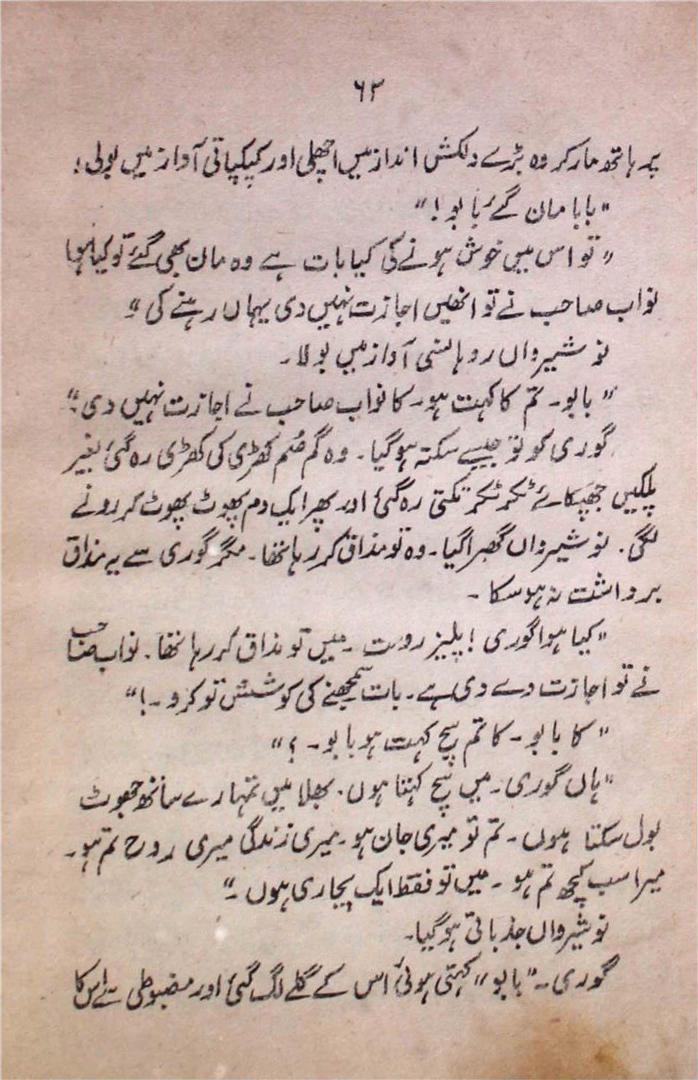 ۶۳
پر ہاتھ مار کر وہ بڑے دلکش انداز میں اچھلی اور کپکپاتی آواز میں بولی!
"بابا مان گئے بابو!"
"تو اس میں خوش ہونے کی کیا بات ہے وہ مان بھی گئے تو کیا ہوا
نواب صاحب نے تو انھیں اجازت نہیں دی یہاں رہنے کی"
نوشیرواں روہانسی آواز میں بولا۔
"بابو۔ تم کا کہت ہو۔ کا نواب صاحب نے اجازت نہیں دی۔"
گوری کو تو جیسے سکتہ ہو گیا۔ وہ گم صُم کھڑی کی کھڑی رہ گئی بغیر
پلکیں جھپکائے ٹکر ٹکر تکتی رہ گئی اور پھر ایک دم پھوٹ پھوٹ کر رونے
لگی۔ نوشیرواں گھبرا گیا۔ وہ تو مذاق کر رہا تھا۔ مگر گوری سے یہ مذاق
برداشت نہ ہو سکا۔
"کیا ہوا گوری! پلیز روت۔ میں تو مذاق کر رہا تھا۔ نواب صاحب
نے تو اجازت دے دی ہے۔ بات سمجھنے کی کوشش تو کرو۔!"
"کا بابو۔ کا تم سچ کہت ہو بابو۔؟"
"ہاں گوری۔ میں سچ کہتا ہوں۔ بھلا میں تمہارے ساتھ جھوٹ
بول سکتا ہوں۔ تم تو میری جان ہو۔ میری زندگی میری روح تم ہو۔
میرا سب کچھ تم ہو۔ میں تو فقط ایک پجاری ہوں۔"
نوشیرواں جذباتی ہو گیا۔
گوری۔ "بابو" کہتی ہوئی اس کے گلے لگ گئی اور مضبوطی سے اس کا